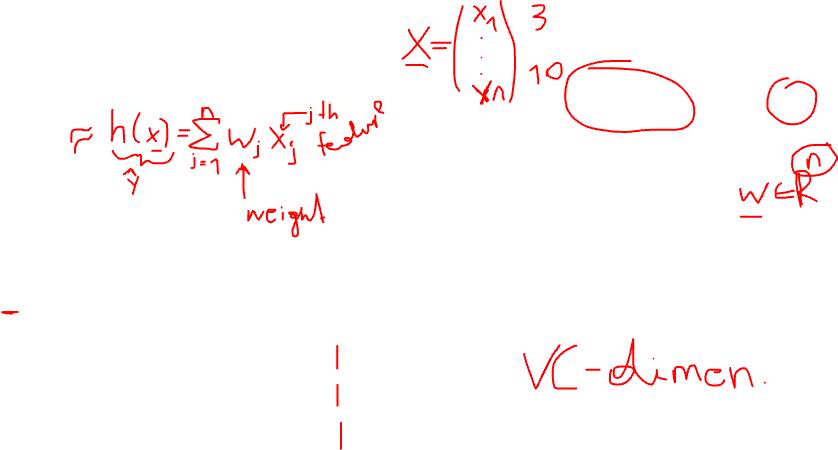 X = (x1 ⋮ xn) 3 10
≈ h(x) = n∑j=1 wj xj jth feature
ŷ
weight
w ∈ R^n
VC-dimen.